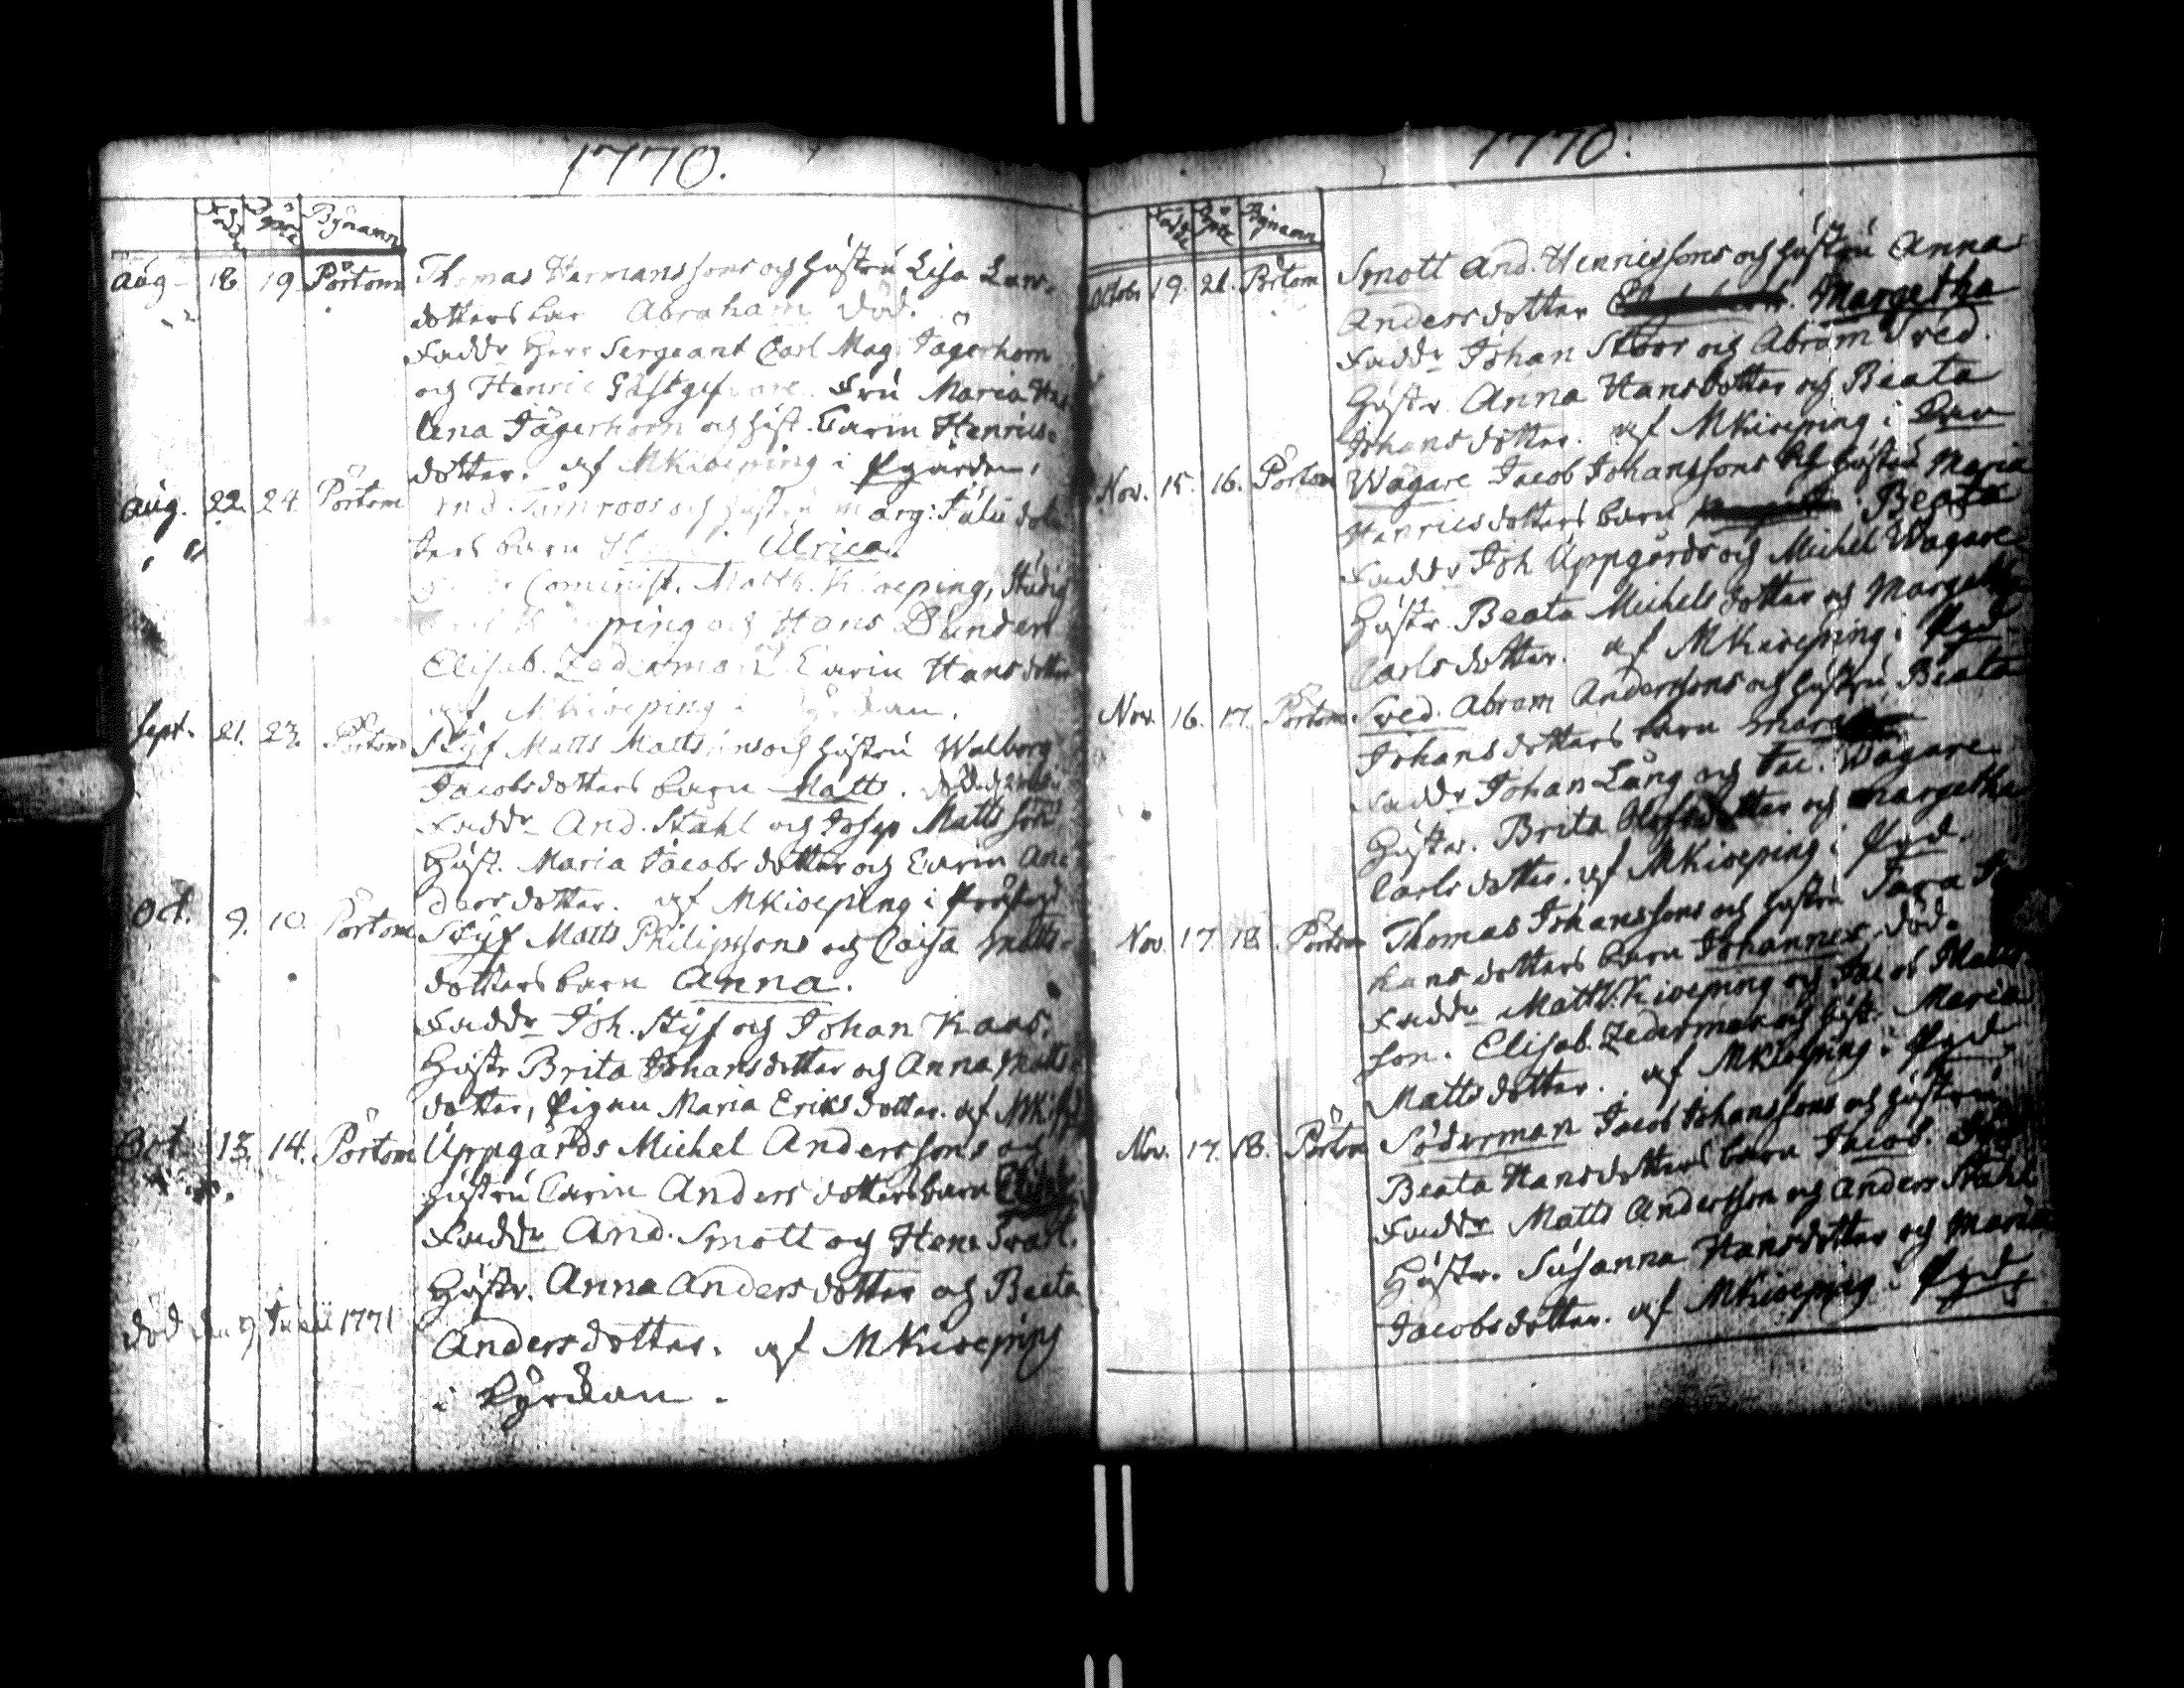 1770.
Född Döpte Bÿnamn
Aug. 18. 19. Pörtom Thomas Harmanssons och hustru Lisa Lars-
dotters barn Abraham död.
Faddr Herr Sergeant Carl Mag. Jägerhorn
och Henric Gästgifvare. Fru Maria He-
lena Jägerhorn och hust. Carin Henrics-
dotter. af MKiœping i Pgården.
Aug. 22. 24. Pörtom Törnroos och hustru Marg: Julii dot-
ters barn Ulrica.
Cominist. Matth. Kiœping, Studios
ping och Hans Dunder
Elisab. Zederman Carin Hansdotter
af MKiœping i
Sept. 21. 23. Pörtom Stÿf Matts Mattssons och hustru Walborg
Jacobsdotters barn Matts. död
Faddr And. Stahl och Josep Mattsson
Hust. Maria Jacobsdotter och Carin An-
dersdotter. af MKiœping i Prästgd
Oct. 9. 10. Pörtom Stÿf Matts Philipssons och Caisa Matts-
dotters barn Anna.
Faddr Joh. Stÿf och Johan Kaas.
Hustr Brita Johansdotter och Anna Matts-
dotter, Pigan Maria Eriksdotter. af MKi
Oct. 13. 14. Pörtom Uppgårds Michel Anderssons och
hustru Carin Andersdotters barn
Faddr And. Smott och Hans Svart.
Hustr. Anna Andersdotter och Beata
död den 9 Junii 1771
Andersdotter. af MKiœping
i Kÿrckan.
1770.
Födde Döpte Bÿnamn
Octobr 19. 21. Pörtom Smott And. Henrissons och hustru Anna
Andersdotter Margetha
Faddr Johan Stoor och Abram Sved.
Hustr. Anna Hansdotter och Beata
Johansdotter. af MKiœping i
Nov. 15. 16. Pörtom Wägare Jacob Johanssons och hustru Maria
Henricsdotters barn Beata
Faddr Joh Uppgårds och Michel Wägare
Hustr. Beata Michelsdotter och Margetha
Carlsdotter. af MKiœping i Pgd
Nov. 16. 17. Pörtom Sved. Abram Anderssons och hustru Beata
Johansdotters barn
Faddr Johan Lång och Jac. Wägare
Hustr. Brita Olofsdotter och Margetha
Carlsdotter. af MKiœping i Pgd.
Nov. 17. 18. Pörtom Thomas Johanssons och hustru Sara Jo-
hansdotters barn Johannes. död.
Faddr Matth. Kiœping och Jacob Matts-
son. Elisab. Zederman och hust. Maria
Mattsdotter. af MKiœping i Pgd.
Nov. 17. 18. Pörtom Söderman Jacob Johanssons och hustru
Beata Hansdotters barn Jacob.
Faddr Matts Andersson och Anders Stahl
Hustr. Susanna Hansdotter och Maria
Jacobsdotter. af MKiœping i Pgd